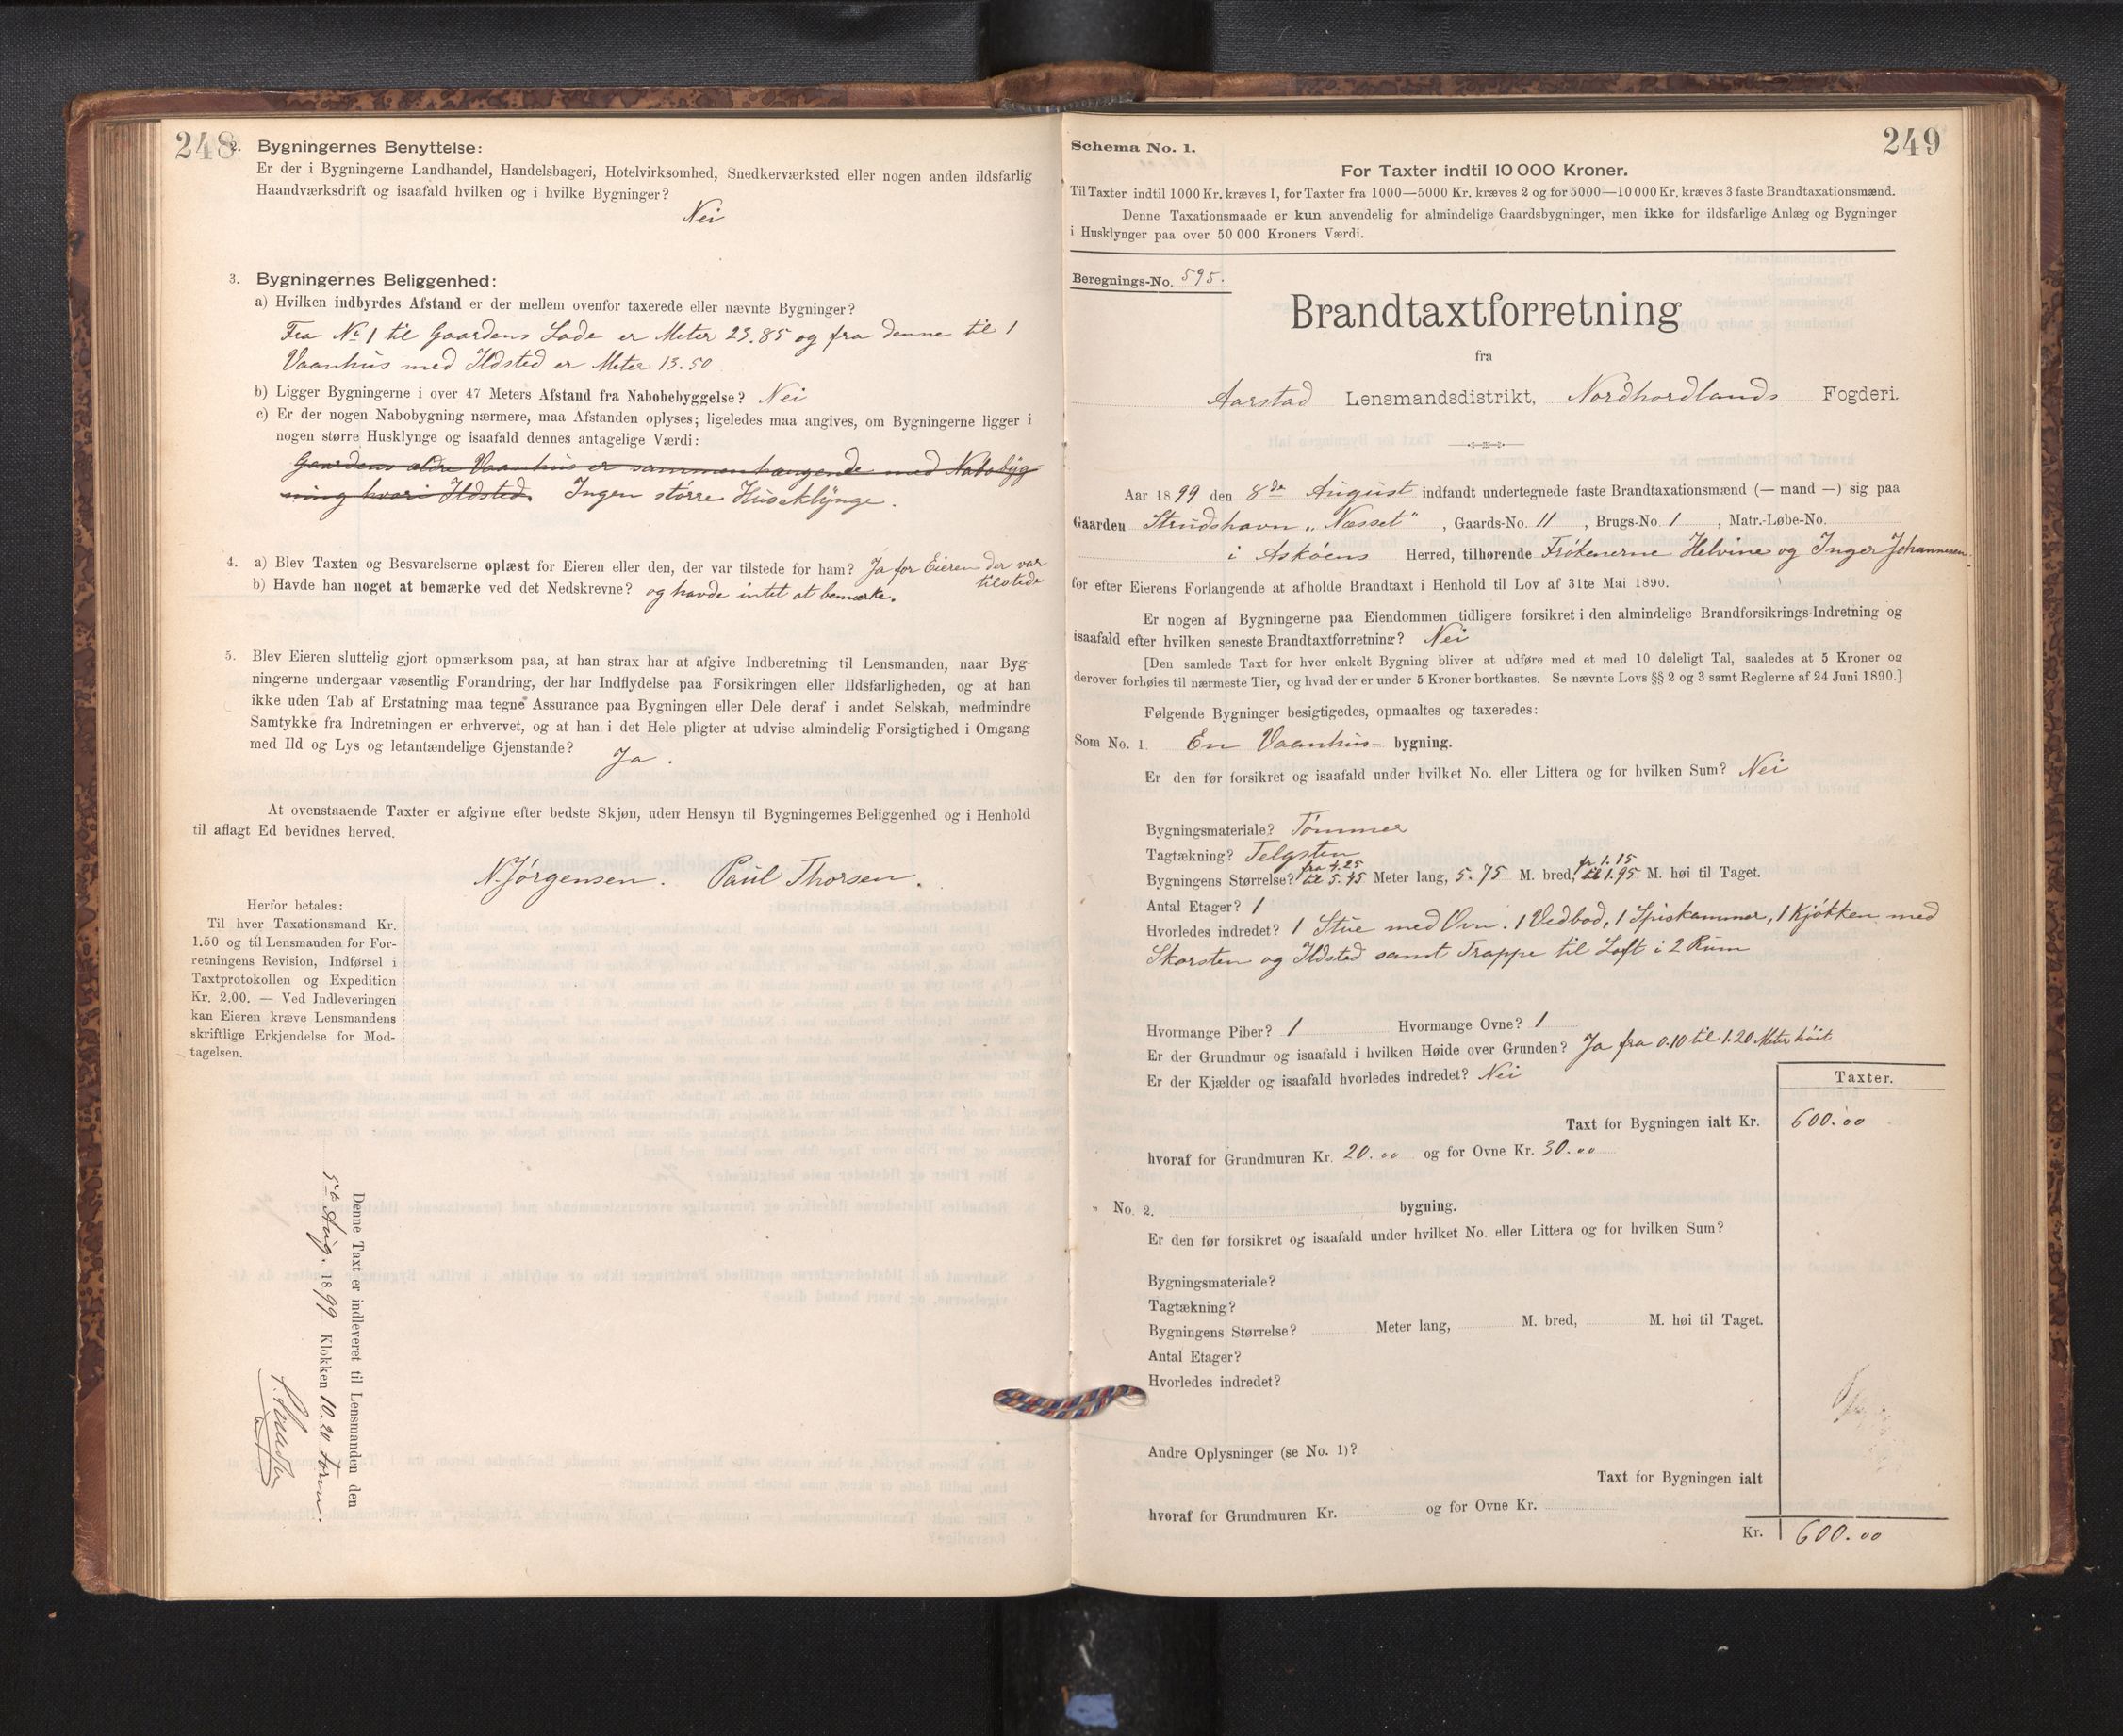 248
2. Bygningernes Benyttelse:
Er der i Bygningerne Landhandel, Handelsbageri, Hotelvirksomhed, Snedkerværksted eller nogen anden ildsfarlig
Haandværksdrift og isaafald hvilken og i hvilke Bygninger?
Nei
3. Bygningernes Beliggenhed:
a) Hvilken indbyrdes Afstand er der mellem ovenfor taxerede eller nævnte Bygninger?
Fra No 1 til Gaardens Lade er Meter 23.85 og fra denne til 1
Vaanhus med Ildsted er Meter 13.50
b) Ligger Bygningerne i over 47 Meters Afstand fra Nabobebyggelse? Nei
c) Er der nogen Nabobygning nærmere, maa Afstanden oplyses; ligeledes maa angives, om Bygningerne ligger i
nogen større Husklynge og isaafald dennes antagelige Værdi:
Gaardens ældre Vaanhus er sammenhængende med Nabobyg
ning hvori Ildsted. Ingen större Huseklynge.
4. a) Blev Taxten og Besvarelserne oplæst for Eieren eller den, der var tilstede for ham? Ja for Eieren der var
tilstede
b) Havde han noget at bemærke ved det Nedskrevne? og havde intet at bemærke.
5. Blev Eieren sluttelig gjort opmærksom paa, at han strax har at afgive Indberetning til Lensmanden, naar Byg-
ningerne undergaar væsentlig Forandring, der har Indflydelse paa Forsikringen eller Ildsfarligheden, og at han
ikke uden Tab af Erstatning maa tegne Assurance paa Bygningen eller Dele deraf i andet Selskab, medmindre
Samtykke fra Indretningen er erhvervet, og at han i det Hele pligter at udvise almindelig Forsigtighed i Omgang
med Ild og Lys og letantændelige Gjenstande?
Ja.
At ovenstaaende Taxter er afgivne efter bedste Skjøn, uden Hensyn til Bygningernes Beliggenhed og i Henhold
til aflagt Ed bevidnes herved.
N. Jörgensen. Paul Thorsen.
Herfor betales:
Til hver Taxationsmand Kr.
1.50 og til Lensmanden for For-
retningens Revision, Indførsel i
Taxtprotokollen og Expedition
Kr. 2.00. — Ved Indleveringen
kan Eieren kræve Lensmandens
skriftlige Erkjendelse for Mod-
tagelsen.
Denne Taxt er indleveret til Lensmanden den
Aug. 1899 Klokken 10.20 form.
249
Schema No. 1.
For Taxter indtil 10 000 Kroner.
Til Taxter indtil 1000 Kr. kræves 1, for Taxter fra 1000—5000 Kr. kræves 2 og for 5000—10 000 Kr. kræves 3 faste Brandtaxationsmænd.
Denne Taxationsmaade er kun anvendelig for almindelige Gaardsbygninger, men ikke for ildsfarlige Anlæg og Bygninger
i Husklynger paa over 50 000 Kroners Værdi.
Beregnings-No. 595.
Brandtaxtforretning
fra
Aarstad Lensmandsdistrikt, Nordhordlands Fogderi.
Aar 1899 den 8de August indfandt undertegnede faste Brandtaxationsmænd (— mand —) sig paa
Gaarden Strudshavn „Næsset“, Gaards-No. 11, Brugs-No 1, Matr.-Løbe-No.
i Asköens Herred, tilhørende Frökenerne Helvine og Inger Johannesen.
for efter Eierens Forlangende at afholde Brandtaxt i Henhold til Lov af 31te Mai 1890.
Er nogen af Bygningerne paa Eiendommen tidligere forsikret i den almindelige Brandforsikrings-Indretning og
isaafald efter hvilken seneste Brandtaxtforretning? Nei
[Den samlede Taxt for hver enkelt Bygning bliver at udføre med et med 10 deleligt Tal, saaledes at 5 Kroner og
derover forhøies til nærmeste Tier, og hvad der er under 5 Kroner bortkastes. Se nævnte Lovs §§ 2 og 3 samt Reglerne af 24 Juni 1890.]
Følgende Bygninger besigtigedes, opmaaltes og taxeredes:
Som No. 1. En Vaanhus- bygning.
Er den før forsikret og isaafald under hvilket No. eller Littera og for hvilken Sum? Nei
Bygningsmateriale? Tömmer
Tagtækning? Telgsten
Bygningens Størrelse? fra 4.25 til 5.45 Meter lang, 5.75 M. bred, fr 1.15 til 1.95 M. høi til Taget.
Antal Etager? 1
Hvorledes indredet? 1 Stue med Ovn. 1 Vedbod, 1 Spiskammer, 1 Kjökken med
Skorsten og Ildsted samt Trappe til Loft i 2 Rum
Hvormange Piber? 1 Hvormange Ovne? 1
Er der Grundmur og isaafald i hvilken Høide over Grunden? Ja fra 0.10 til 1.20 Meter höit
Er der Kjælder og isaafald hvorledes indredet? Nei
Taxter.
Taxt for Bygningen ialt Kr. 600.00
hvoraf for Grundmuren Kr. 20.00 og for Ovne Kr. 30.00
„ No. 2. bygning.
Er den før forsikret og isaafald under hvilket No. eller Littera og for hvilken Sum?
Bygningsmateriale?
Tagtækning?
Bygningens Størrelse? Meter lang, M. bred, M. høi til Taget.
Antal Etager?
Hvorledes indredet?
Andre Oplysninger (se No. 1)?
Taxt for Bygningen ialt
hvoraf for Grundmuren Kr. og for Ovne Kr.
Kr. 600.00